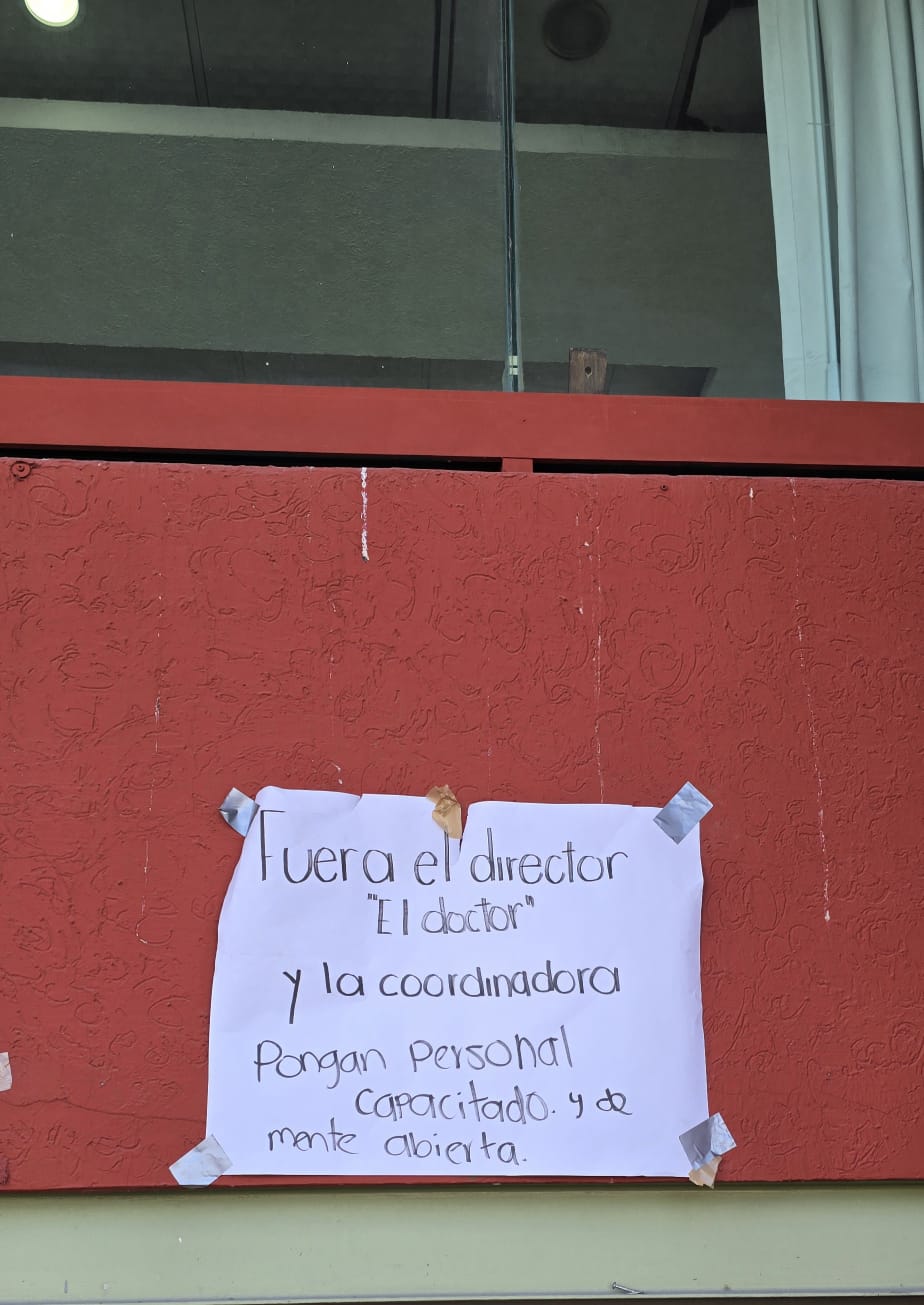 Fuera el director
"El doctor"
y la coordinadora
Pongan Personal
capacitado. y de
mente abierta.